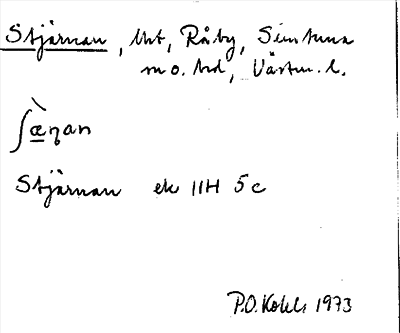 Stjärnan, Uht, Råby, Simtuna
m o. hd, Västm. l.
ʃæ̀ɳan
Stjärnan ek 11H 5c
P.O. Kohls 1973